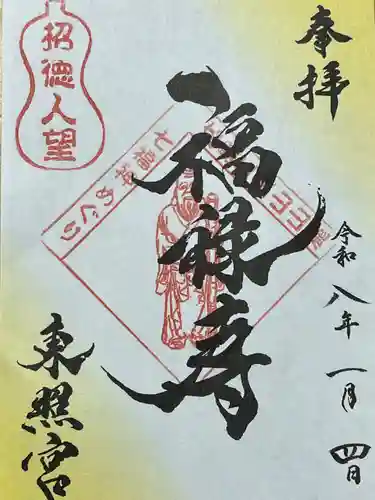 奉拝
令和八年一月四日
福禄寿
七福神めぐり
招德人望
東照宮